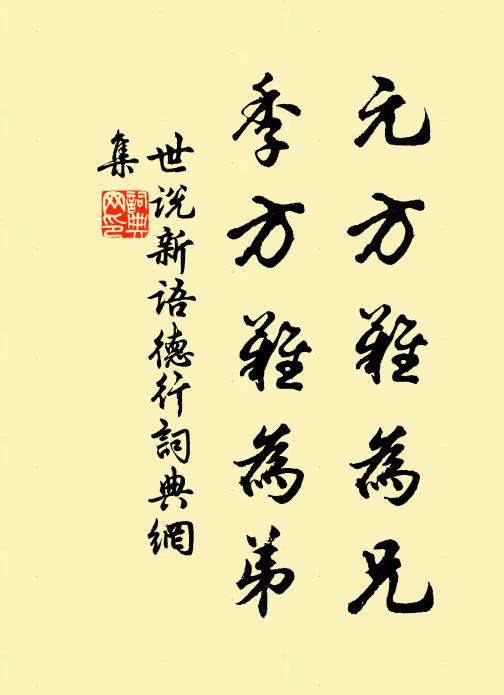 元方難為兄
季方難為弟
世说新语德行詞典網
集
詞典
网印